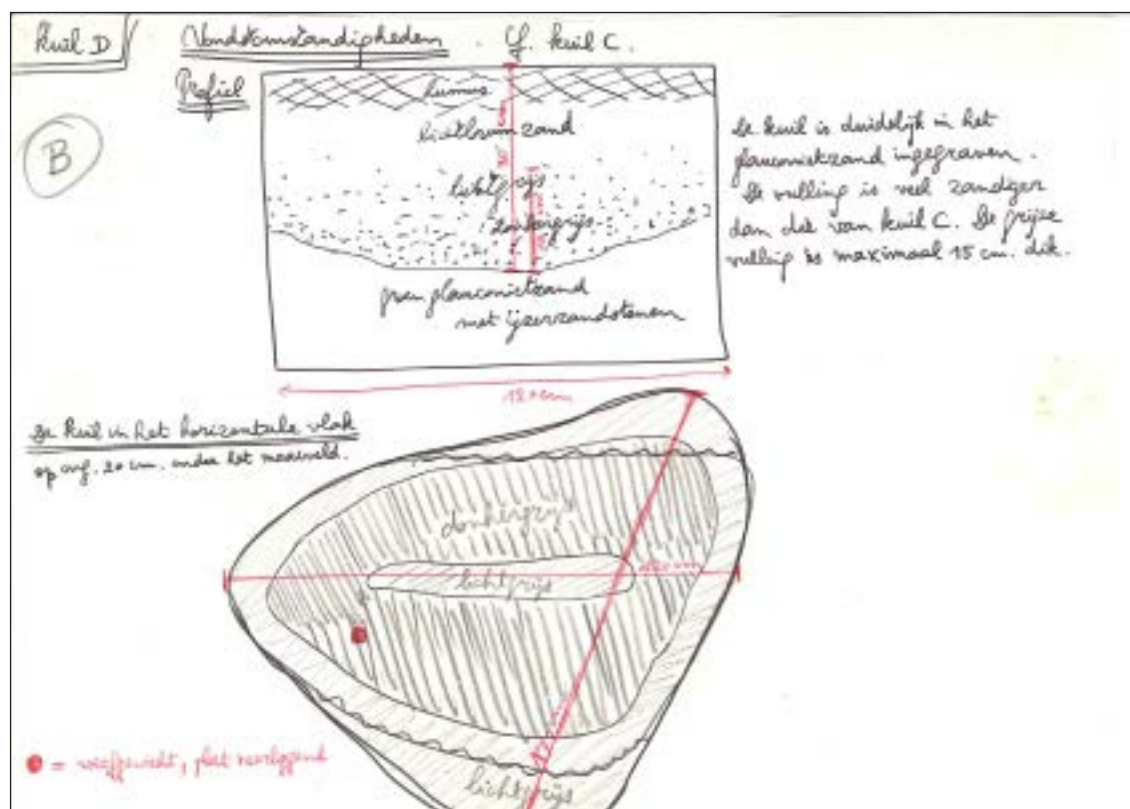 Kuil D Vondstomstandigheden. Cf. kuil C.
Profiel
B
humus
lichtbruin zand
lichtgrijs
donkergrijs
groen glauconietzand
met ijzerzandstenen
120 cm
De kuil is duidelijk in het
glauconietzand ingegraven.
De vulling is veel zandiger
dan die van kuil C. De grijze
vulling is maximaal 15 cm. dik.
De kuil in het horizontale vlak
op ong. 20 cm. onder het maaiveld.
donkergrijs
lichtgrijs
120 cm
lichtgrijs
= weefgewicht, plat neerliggend